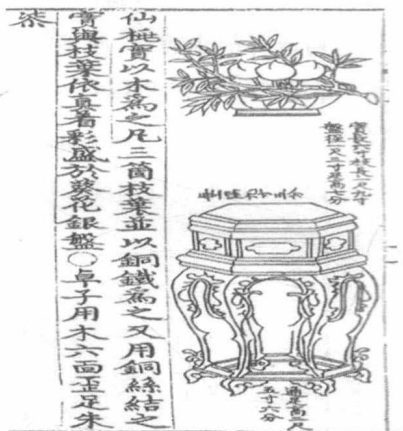 實長六寸枝長一尺九寸
盤徑一尺三寸足高分
通足高二尺
五寸六分
仙桃實以木爲之凡三箇枝葉並以銅鐵爲之又用銅絲結之
實與枝葉依真着彩盛於葵花銀盤○卓子用木六面歪足朱
漆